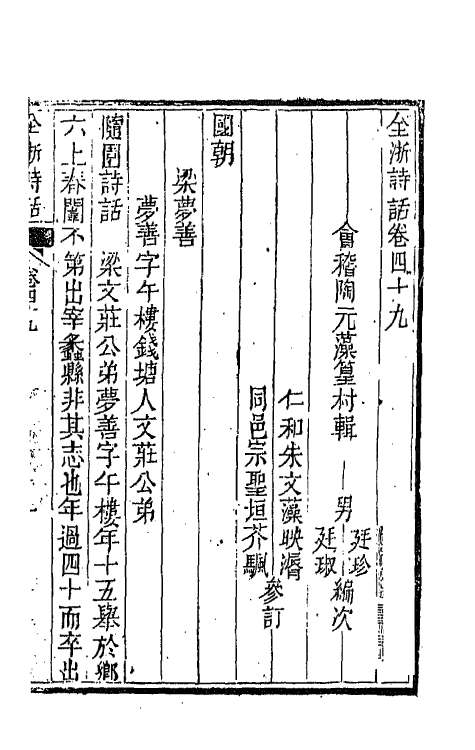 全浙詩話卷四十九
會稽陶元藻篁村輯
男
廷珍
廷珷
編次
仁和朱文藻映漘
同邑宗聖垣芥颿
參訂
國朝
梁夢善
夢善字午樓錢塘人文莊公弟
隨園詩話　梁文莊公弟夢善字午樓年十五舉於鄉
六上春闈不第出宰蠡縣非其志也年過四十而卒出
全浙詩話
卷四十九